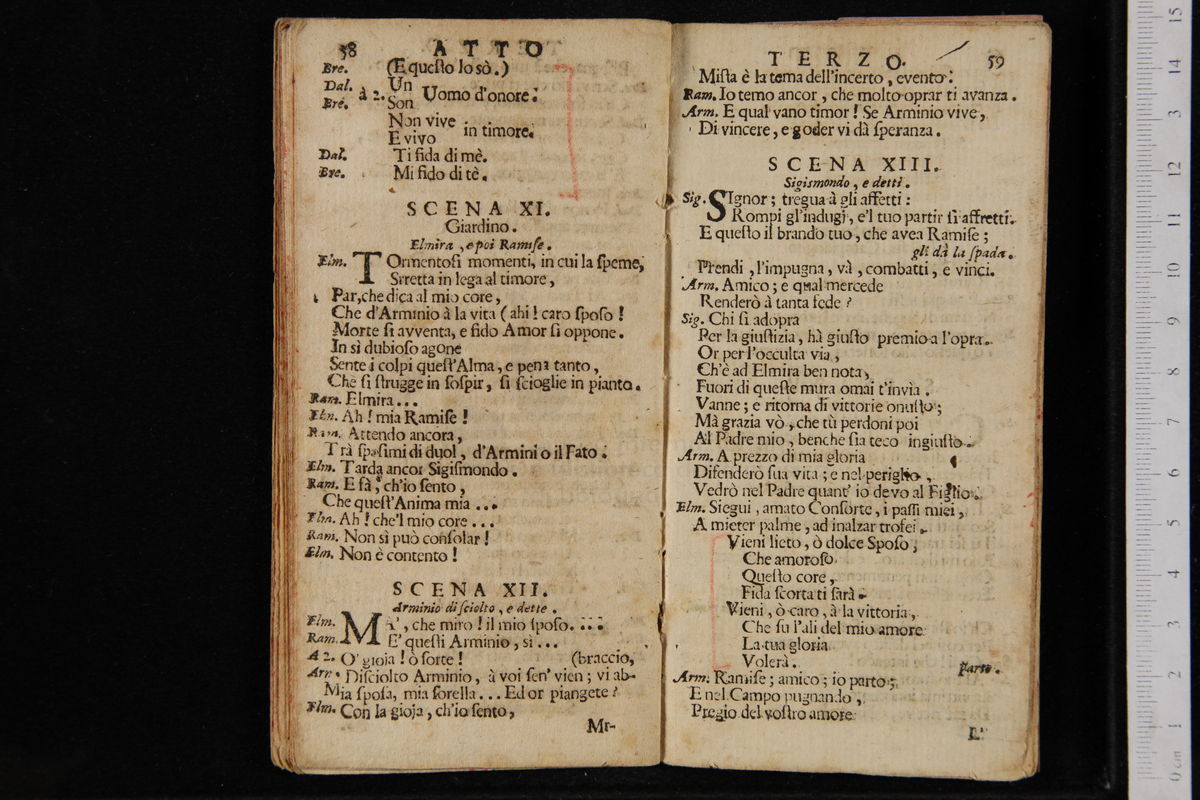 58 ATTO
Bre. (E queſto lo sò.)
Dal. Un
à 2. Uomo d'onore:
Bre. Son
Non vive
in timore.
E vivo
Dal. Ti fida di mè.
Bre. Mi fido di tè.
SCENA XI.
Giardino.
Elmira, e poi Ramiſe.
Elm. TOrmentoſi momenti, in cui la ſpeme,
Stretta in lega al timore,
Par, che dica al mio core,
Che d'Arminio à la vita (ahi! caro ſpoſo!
Morte ſi avventa, e fido Amor ſi oppone.
In sì dubioſo agone
Sente i colpi queſt'Alma, e pena tanto,
Che ſi ſtrugge in ſoſpir, ſi ſcioglie in pianto.
Ram. Elmira...
Elm. Ah! mia Ramiſe!
Ram. Attendo ancora,
Trà ſpaſimi di duol, d'Arminio il Fato.
Elm. Tarda ancor Sigiſmondo.
Ram. E fà, ch'io ſento,
Che queſt'Anima mia...
Elm. Ah! che'l mio core...
Ram. Non sì può conſolar!
Elm. Non è contento!
SCENA XII.
Arminio diſciolto, e dette.
Elm. MA', che miro! il mio ſpoſo....
Ram. E' queſti Arminio, sì...
A 2. O' gioja! ò ſorte! (braccio,
Arm. Diſciolto Arminio, à voi ſen' vien; vi ab-
Mia ſpoſa, mia ſorella... Ed or piangete?
Elm. Con la gioja, ch'io ſento,
Mi-
TERZO. 59
Miſta è la tema dell'incerto, evento.
Ram. Io temo ancor, che molto oprar ti avanza.
Arm. E qual vano timor! Se Arminio vive,
Di vincere, e goder vi dà ſperanza.
SCENA XIII.
Sigismondo, e detti.
Sig. SIgnor; tregua à gli affetti:
Rompi gl'indugi, e'l tuo partir ſi affretti.
E queſto il brando tuo, che avea Ramiſe;
gli dà la ſpada.
Prendi, l'impugna, và, combatti, e vinci.
Arm. Amico; e qual mercede
Renderò à tanta fede?
Sig. Chi ſi adopra
Per la giuſtizia, hà giuſto premio a l'opra.
Or per l'occulta via,
Ch'è ad Elmira ben nota,
Fuori di queſte mura omai t'invia.
Vanne; e ritorna di vittorie onuſto;
Mà grazia vò, che tù perdoni poi
Al Padre mio, benche ſia teco ingiuſto.
Arm. A prezzo di mia gloria
Difenderò ſua vita; e nel periglio,
Vedrò nel Padre quant' io devo al Figlio.
Elm. Siegui, amato Conſorte, i paſſi miei,
A mieter palme, ad inalzar trofei.
Vieni lieto, ò dolce Spoſo;
Che amoroſo
Queſto core,
Fida ſcorta ti ſarà.
Vieni, ò caro, à la vittoria,
Che ſu l'ali del mio amore
La tua gloria
Volerà. Parte.
Arm. Ramiſe; amico; io parto;
E nel Campo pugnando,
Pregio del voſtro amore